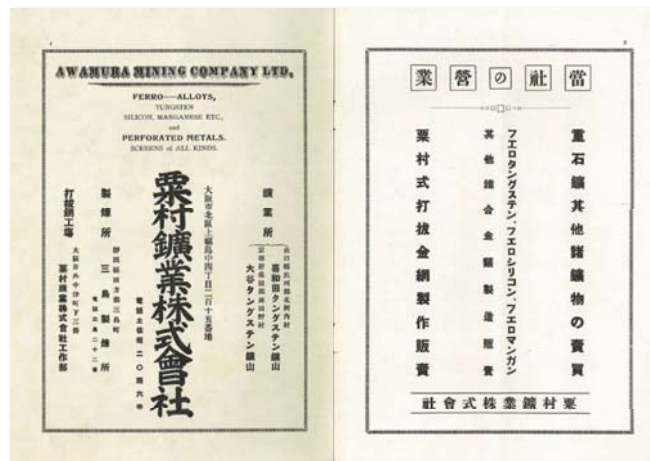 AWAMURA MINING COMPANY LTD.
FERRO—ALLOYS,
TUNGSTEN
SILICON, MANGANESE ETC.,
and
PERFORATED METALS.
SCREENS of ALL KINDS.
鑛業所
山口縣玖珂郡北河內村
喜和田タングステン鑛山
大谷タングステン鑛山
大阪市北區上福島中四丁目二百十五番地
粟村鑛業株式會社
電話土佐堀二〇四六番
製煉所
靜岡縣田方郡三島町
三島製煉所
電話三島二十二番
打拔網工場
大阪市外中津町下三番
粟村鑛業株式會社工作部
當社の營業
重石鑛其他諸鑛物の賣買
フエロタングステン、フエロシリコン、フエロマンガン
其他諸合金類製造販賣
粟村式打拔金網製作販賣
粟村鑛業株式會社